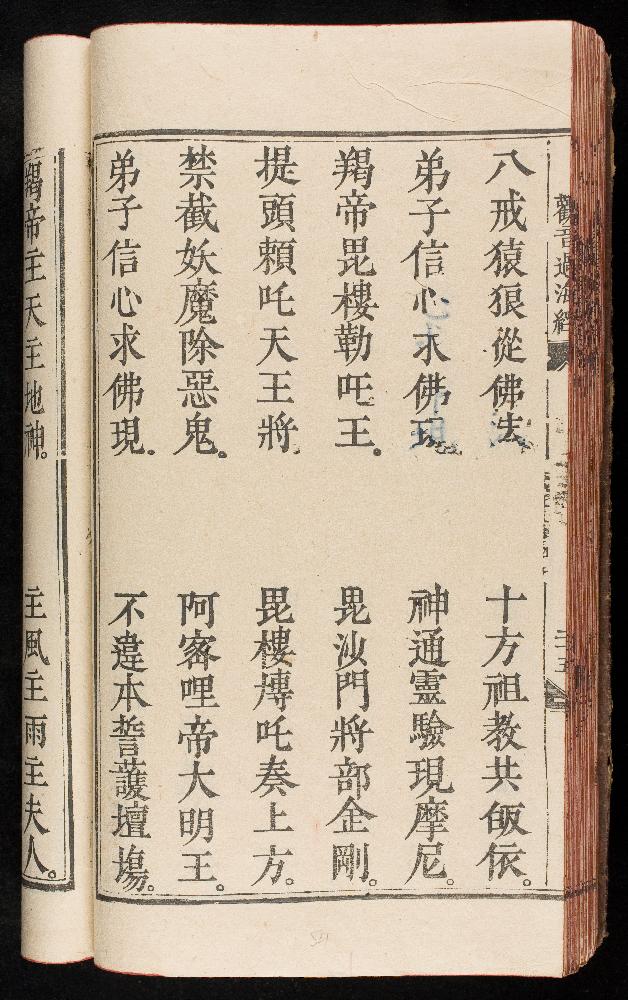 觀音過海經
八戒猿狼從佛法 十方祖教共皈依。
弟子信心求佛現。 神通靈驗現摩尼。
羯帝毘樓勒吒王。 毘沙門將部金剛。
提頭頼吒天王將。 毘樓博吒奏上方。
禁截妖魔除惡鬼。 阿密哩帝大明王。
弟子信心求佛現。 不違本誓護壇塲。
羯帝主天主地神。 主風主雨主夫人。